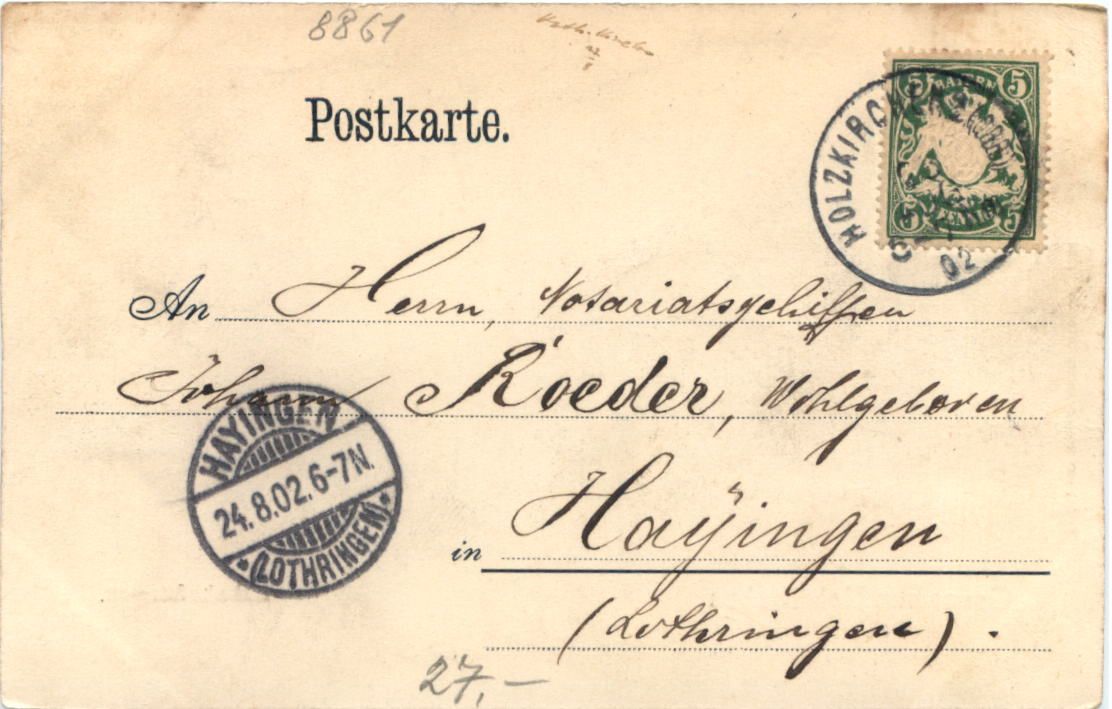 8861
Postkarte.
5 BAYERN 5
5 PFENNIG 5
HOLZKIRCHEN
02
An Herrn, Notariatsgehilfen
Johann Roeder, Wohlgeboren
HAYINGEN
24.8.02.6-7N.
*(LOTHRINGEN)*
in Haÿingen
(Lothringen).
27,-